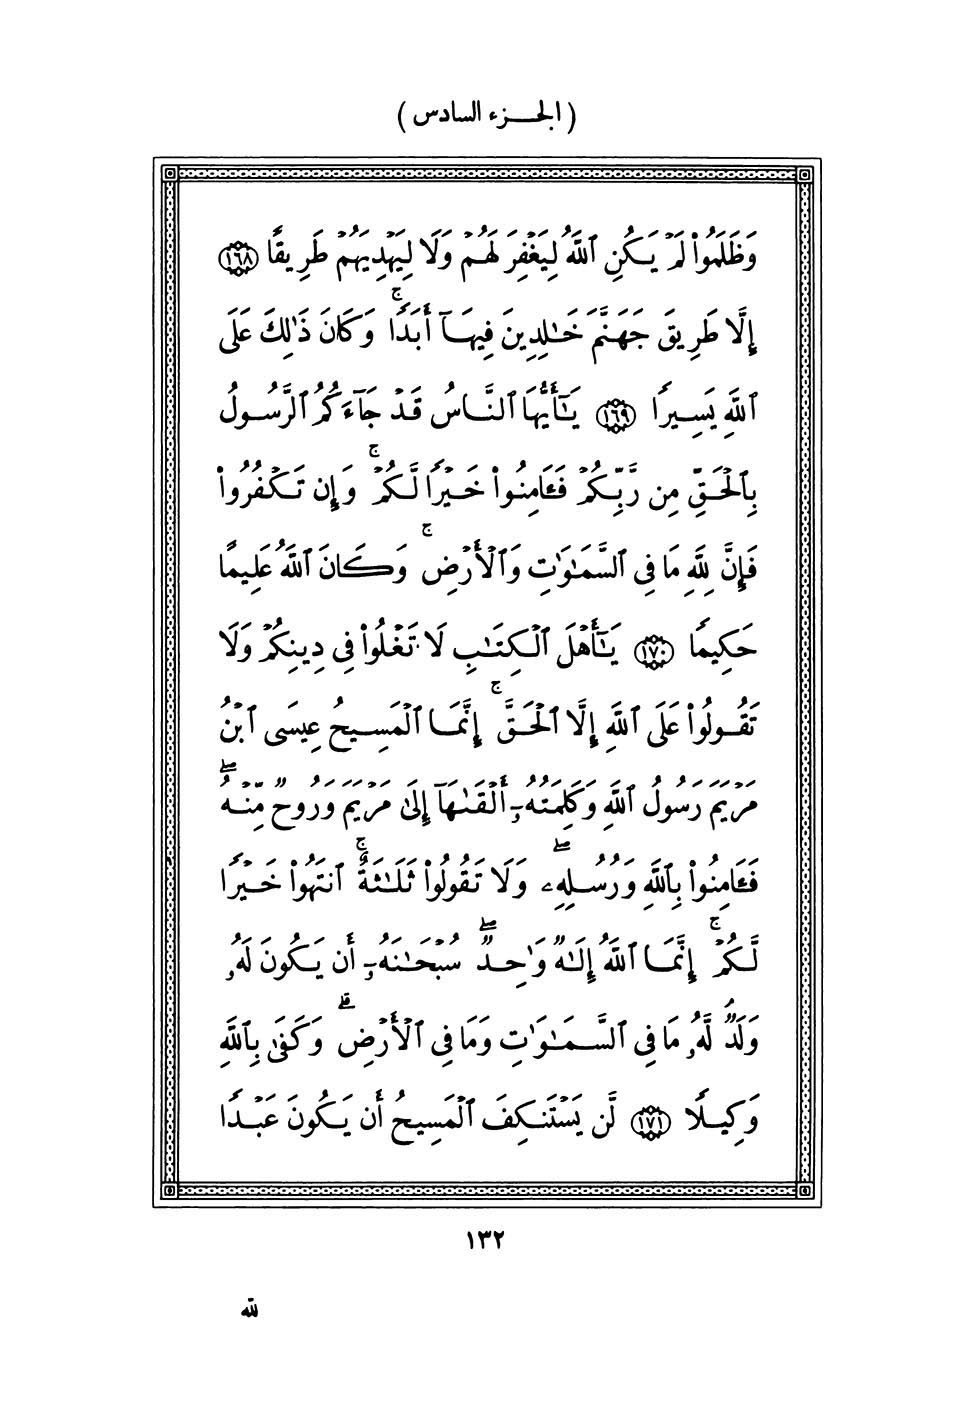 (الجزء السادس)
وَظَلَمُواْ لَمْ يَكُنِ ٱللَّهُ لِيَغْفِرَ لَهُمْ وَلَا لِيَهْدِيَهُمْ طَرِيقًا ١٦٨
إِلَّا طَرِيقَ جَهَنَّمَ خَٰلِدِينَ فِيهَآ أَبَدًاۚ وَكَانَ ذَٰلِكَ عَلَى
ٱللَّهِ يَسِيرًا ١٦٩ يَٰٓأَيُّهَا ٱلنَّاسُ قَدْ جَآءَكُمُ ٱلرَّسُولُ
بِٱلْحَقِّ مِن رَّبِّكُمْ فَـَٔامِنُواْ خَيْرًا لَّكُمْۚ وَإِن تَكْفُرُواْ
فَإِنَّ لِلَّهِ مَا فِى ٱلسَّمَٰوَٰتِ وَٱلْأَرْضِۚ وَكَانَ ٱللَّهُ عَلِيمًا
حَكِيمًا ١٧٠ يَٰٓأَهْلَ ٱلْكِتَٰبِ لَا تَغْلُواْ فِى دِينِكُمْ وَلَا
تَقُولُواْ عَلَى ٱللَّهِ إِلَّا ٱلْحَقَّۚ إِنَّمَا ٱلْمَسِيحُ عِيسَى ٱبْنُ
مَرْيَمَ رَسُولُ ٱللَّهِ وَكَلِمَتُهُۥٓ أَلْقَىٰهَآ إِلَىٰ مَرْيَمَ وَرُوحٌ مِّنْهُۖ
فَـَٔامِنُواْ بِٱللَّهِ وَرُسُلِهِۦۖ وَلَا تَقُولُواْ ثَلَٰثَةٌۚ ٱنتَهُواْ خَيْرًا
لَّكُمْۚ إِنَّمَا ٱللَّهُ إِلَٰهٌ وَٰحِدٌۖ سُبْحَٰنَهُۥٓ أَن يَكُونَ لَهُۥ
وَلَدٌۘ لَّهُۥ مَا فِى ٱلسَّمَٰوَٰتِ وَمَا فِى ٱلْأَرْضِۗ وَكَفَىٰ بِٱللَّهِ
وَكِيلًا ١٧١ لَّن يَسْتَنكِفَ ٱلْمَسِيحُ أَن يَكُونَ عَبْدًا
١٣٢
لله